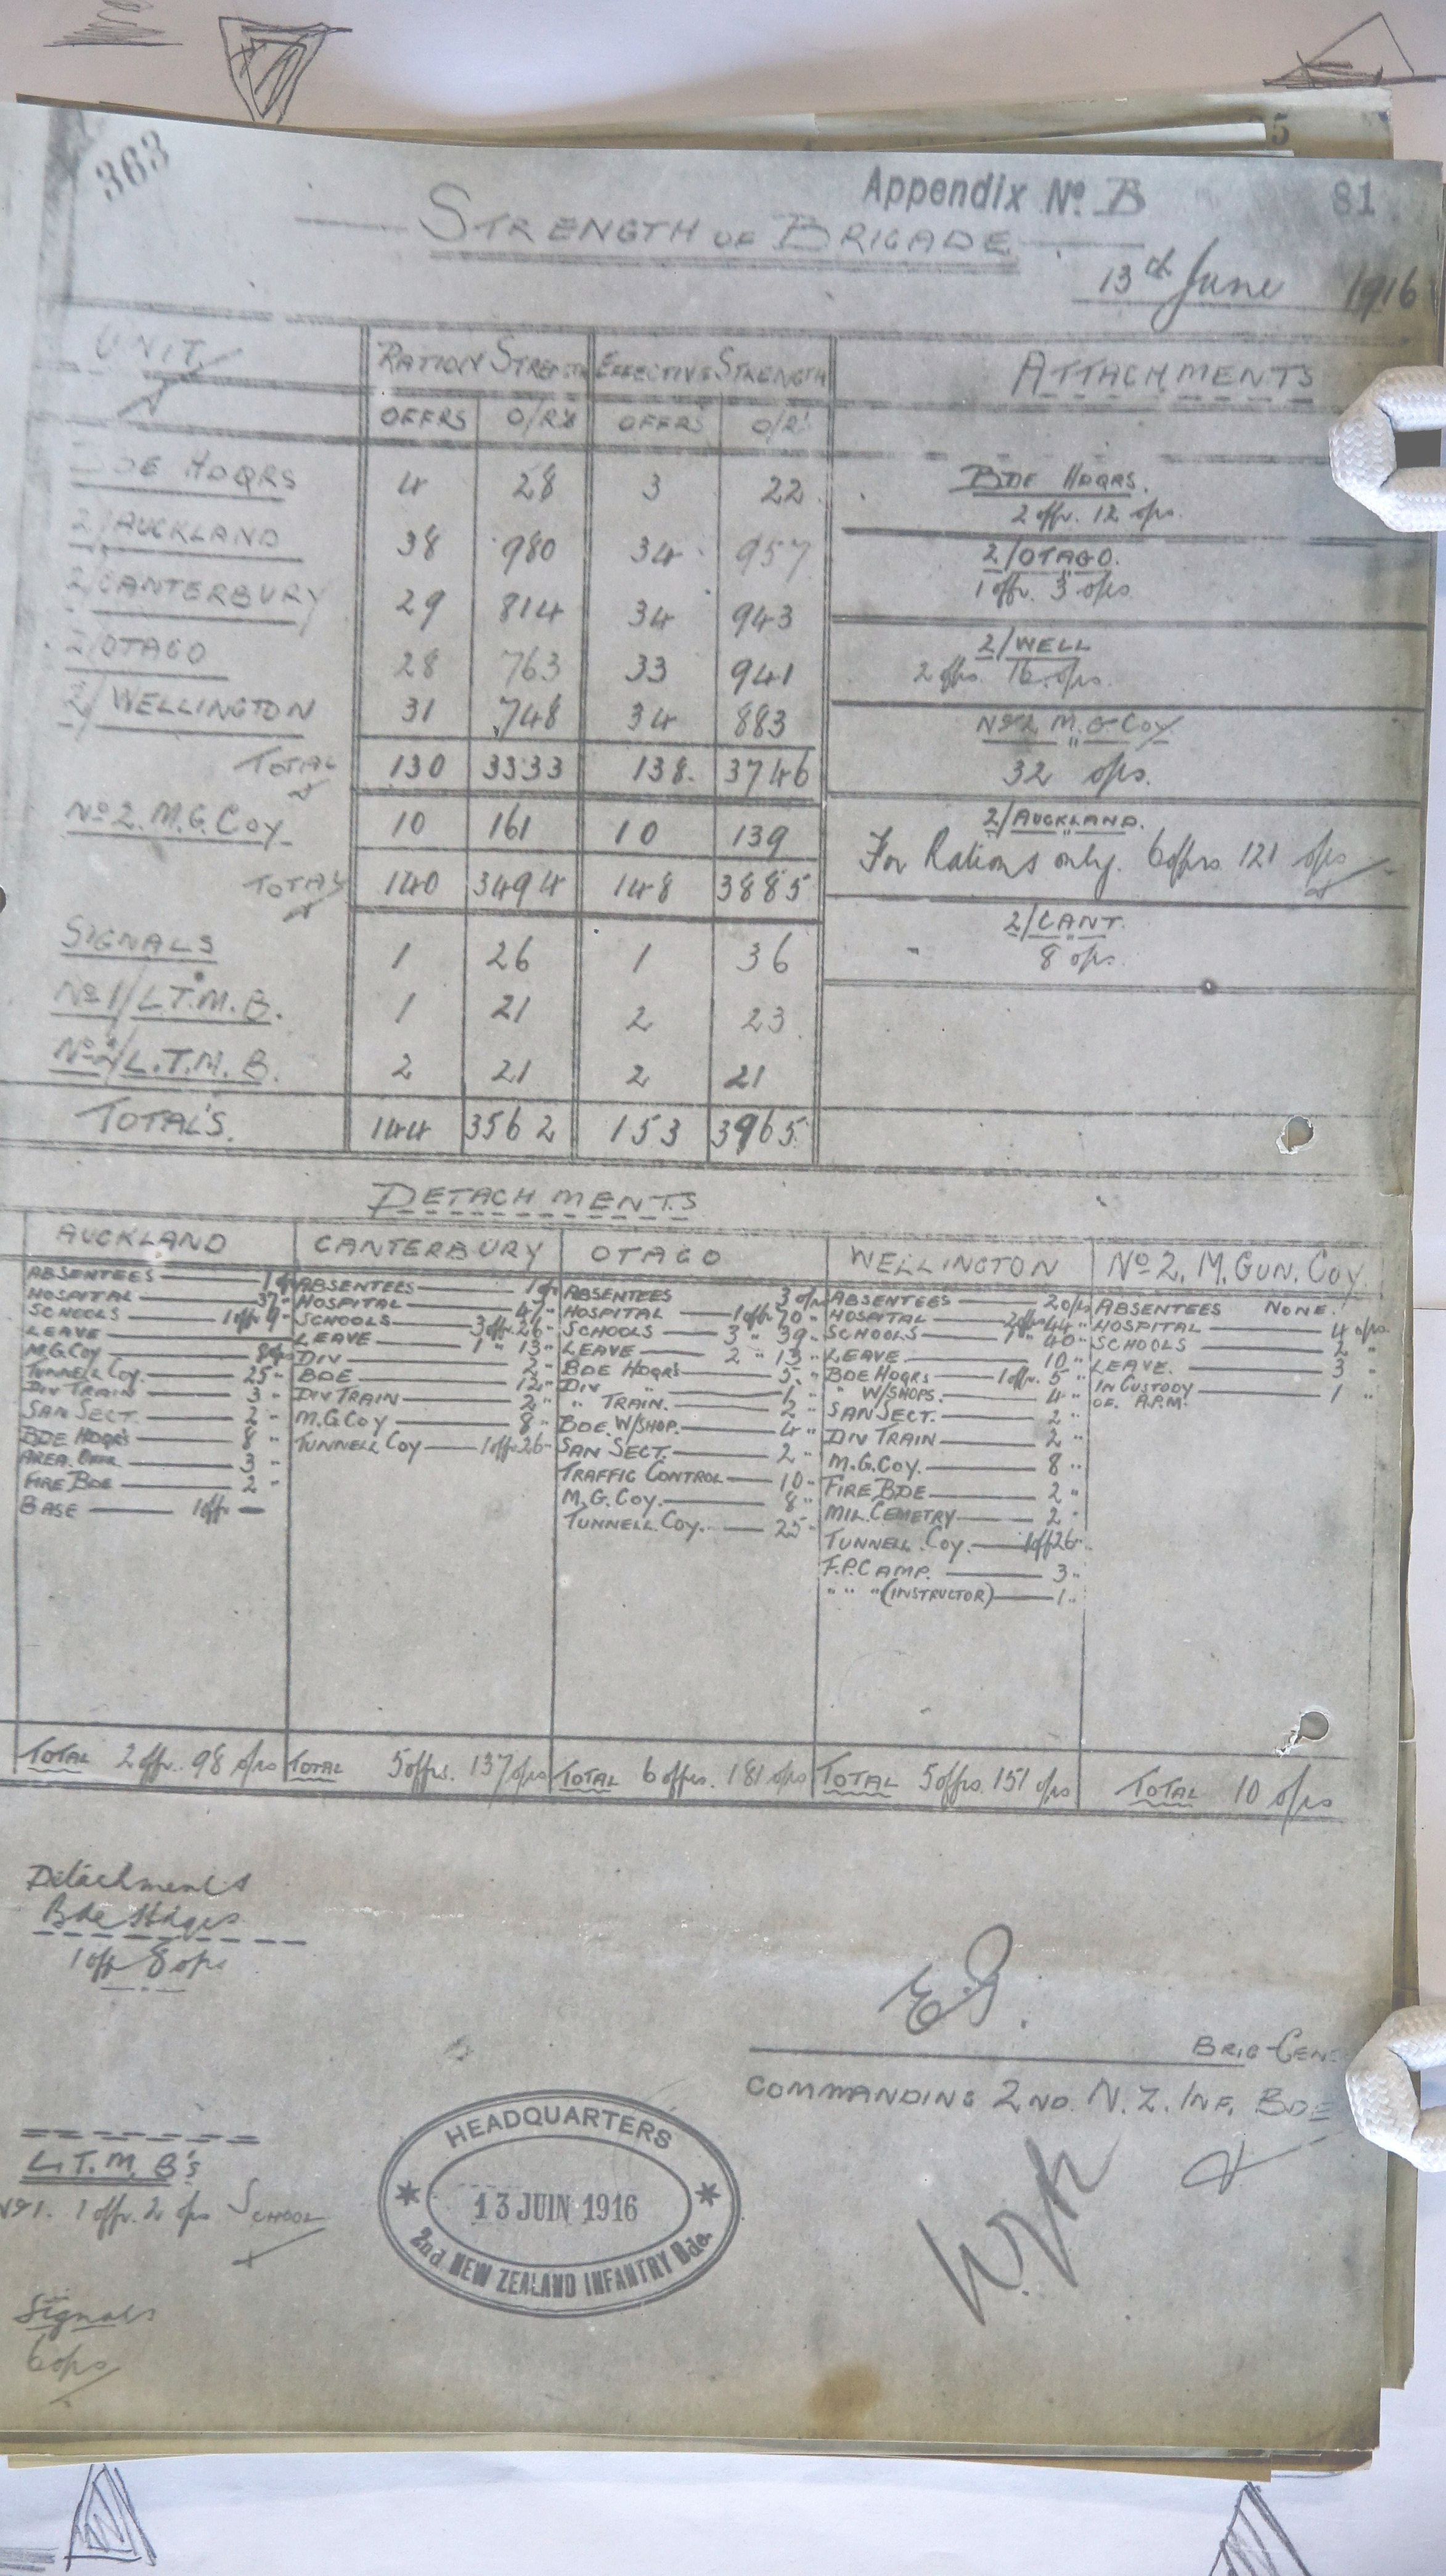 363
Appendix No. B 81
STRENGTH OF BRIGADE
13th June 1916
UNIT. RATION STRENGTH EFFECTIVE STRENGTH ATTACHMENTS
OFFRS O/R's OFFRS O/R'
BDE HDQRS 4 28 3 22
2/AUCKLAND 38 980 34 957
2/CANTERBURY 29 814 34 943
2/OTAGO 28 763 33 941
2/WELLINGTON 31 748 34 883
TOTAL 130 3333 138 3746
No 2. M.G. COY 10 161 10 139
TOTAL 140 3494 148 3885
SIGNALS 1 26 1 36
No 1/L.T.M.B. 1 21 2 23
No 2/L.T.M.B. 2 21 2 21
TOTAL'S. 144 3562 153 3965
BDE HDQRS.
2 offr. 12 o/rs.
2/OTAGO.
1 offr. 3 o/rs
2/WELL
2 offrs. 16 o/rs.
No 2 M.G. Coy
32 o/rs.
2/AUCKLAND.
For Rations only. 6 offrs 121 o/rs
2/CANT.
8 o/rs.
DETACHMENTS
AUCKLAND
ABSENTEES 1
HOSPITAL 37 "
SCHOOLS 1 offr 9 "
LEAVE
M.G. Coy 8
TUNNELL Coy. 25 "
DIV TRAIN 3 "
SAN SECT. 2 "
BDE HDQRS 8 "
AREA 3 "
FIRE BDE 2 "
BASE 1 offr —
TOTAL 2 offr. 98 o/rs
CANTERBURY
ABSENTEES 1
HOSPITAL 47 "
SCHOOLS 3 offr. 26 "
LEAVE 1 " 13 "
DIV 2 "
BDE 12 "
DIV TRAIN 2 "
M.G. Coy 8 "
TUNNELL Coy 1 offr 26 "
TOTAL 5 offrs. 137 o/rs
OTAGO
ABSENTEES 3 o/rs
HOSPITAL 1 offr. 70 "
SCHOOLS 3 " 39 "
LEAVE 2 " 13 "
BDE HDQRS 5 "
DIV " 1 "
" TRAIN. 2 "
BDE. W/SHOP. 4 "
SAN SECT. 2 "
TRAFFIC CONTROL 10 "
M.G. Coy. 8 "
TUNNELL. Coy. 25 "
TOTAL 6 offrs. 181 o/rs
WELLINGTON
ABSENTEES 2 o/rs
HOSPITAL 2 offr 44 "
SCHOOLS 1 " 40 "
LEAVE 10 "
BDE HDQRS 1 offr. 5 "
" W/SHOPS. 4 "
SAN SECT. 2 "
DIV TRAIN 2 "
M.G. Coy. 8 "
FIRE BDE 2 "
MIL. CEMETRY 2 "
TUNNELL. Coy. 1 off 26 "
F.P. CAMP. 3 "
" " " (INSTRUCTOR) 1 "
TOTAL 5 offrs. 151 o/rs
No 2, M. GUN. COY
ABSENTEES NONE.
HOSPITAL 4 o/rs
SCHOOLS 2 "
LEAVE. 3 "
IN CUSTODY
OF. A.P.M. 1 "
TOTAL 10 o/rs
Detachments
Bde Hdqrs
1 off 8 o/rs
BRIG-GEN
COMMANDING 2ND. N.Z. INF. BDE
L.T.M.B's
No 1. 1 offr. 2 o/rs SCHOOL
HEADQUARTERS
13 JUIN 1916
2nd NEW ZEALAND INFANTRY Bde.
Signals
6 o/rs